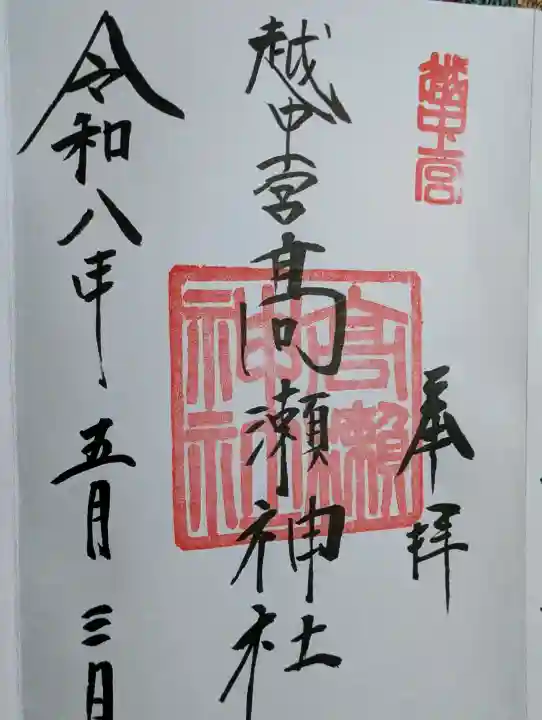 越中一宮
奉拝
越中一宮髙瀬神社
高瀬
神社
令和八年五月三日